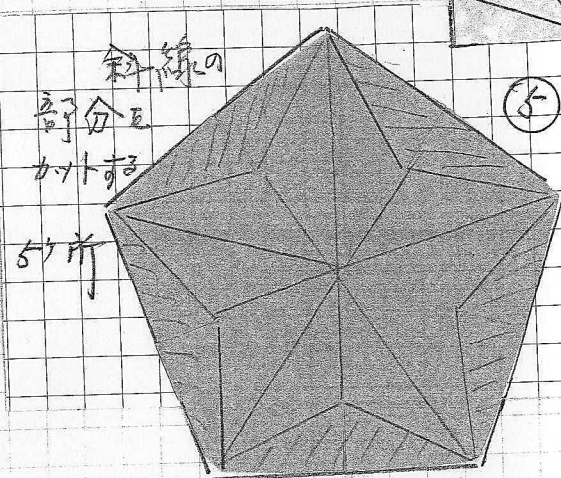 斜線の
部分を
カットする
5ヶ所
5